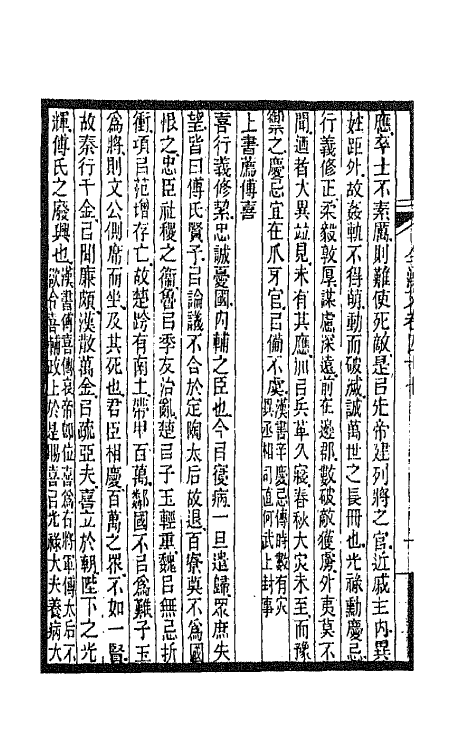 應卒士不素厲則難使死敵是㠯先帝建列將之官近戚主內異
姓距外故姦軌不得萌動而破滅誠萬世之長冊也光祿勳慶忌
行義修正柔毅敦厚謀慮深遠前在邊郡數破敵獲虜外夷莫不
聞迺者大異竝見未有其應加㠯兵革久寢春秋大灾未至而豫
禦之慶忌宜在爪牙官㠯備不虞漢書辛慶忌傳時數有灾異丞相司直何武上封事
上書薦傅喜
喜行義修絜忠誠憂國內輔之臣也今㠯寑病一旦遣歸眾庶失
望皆曰傅氏賢子㠯論議不合於定陶太后故退百寮莫不為國
恨之忠臣社稷之衞魯㠯季友治亂楚㠯子玉輕重魏㠯無忌折
衝項㠯范增存亡故楚跨有南土帶甲百萬鄰國不㠯為難子玉
為將則文公側席而坐及其死也君臣相慶百萬之眾不如一賢
故秦行千金㠯閒廉頗漢散萬金㠯疏亞夫喜立於朝陛下之光
輝傅氏之廢興也漢書傅喜傳哀帝卽位喜為右將軍傅太后不欲令喜輔政上於是賜喜㠯光祿大夫養病大